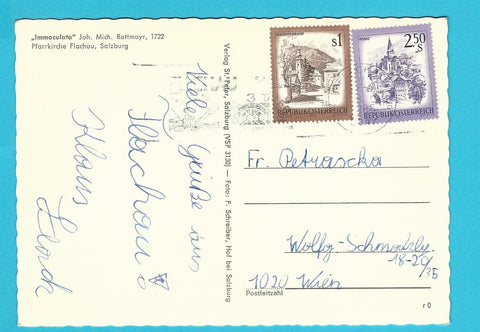 „Immaculata" Joh. Mich. Rottmayr, 1722
Pfarrkirche Flachau, Salzburg
Viele Grüße aus
Flachau
Klaus
Verlag St. Peter, Salzburg (VSP 3138) — Foto: F. Schreiber, Hof bei Salzburg
S1
REPUBLIK ÖSTERREICH
2.50
S
REPUBLIK ÖSTERREICH
Fr. Petrascha
18-20/35
1020 Wien
Postleitzahl
r 0